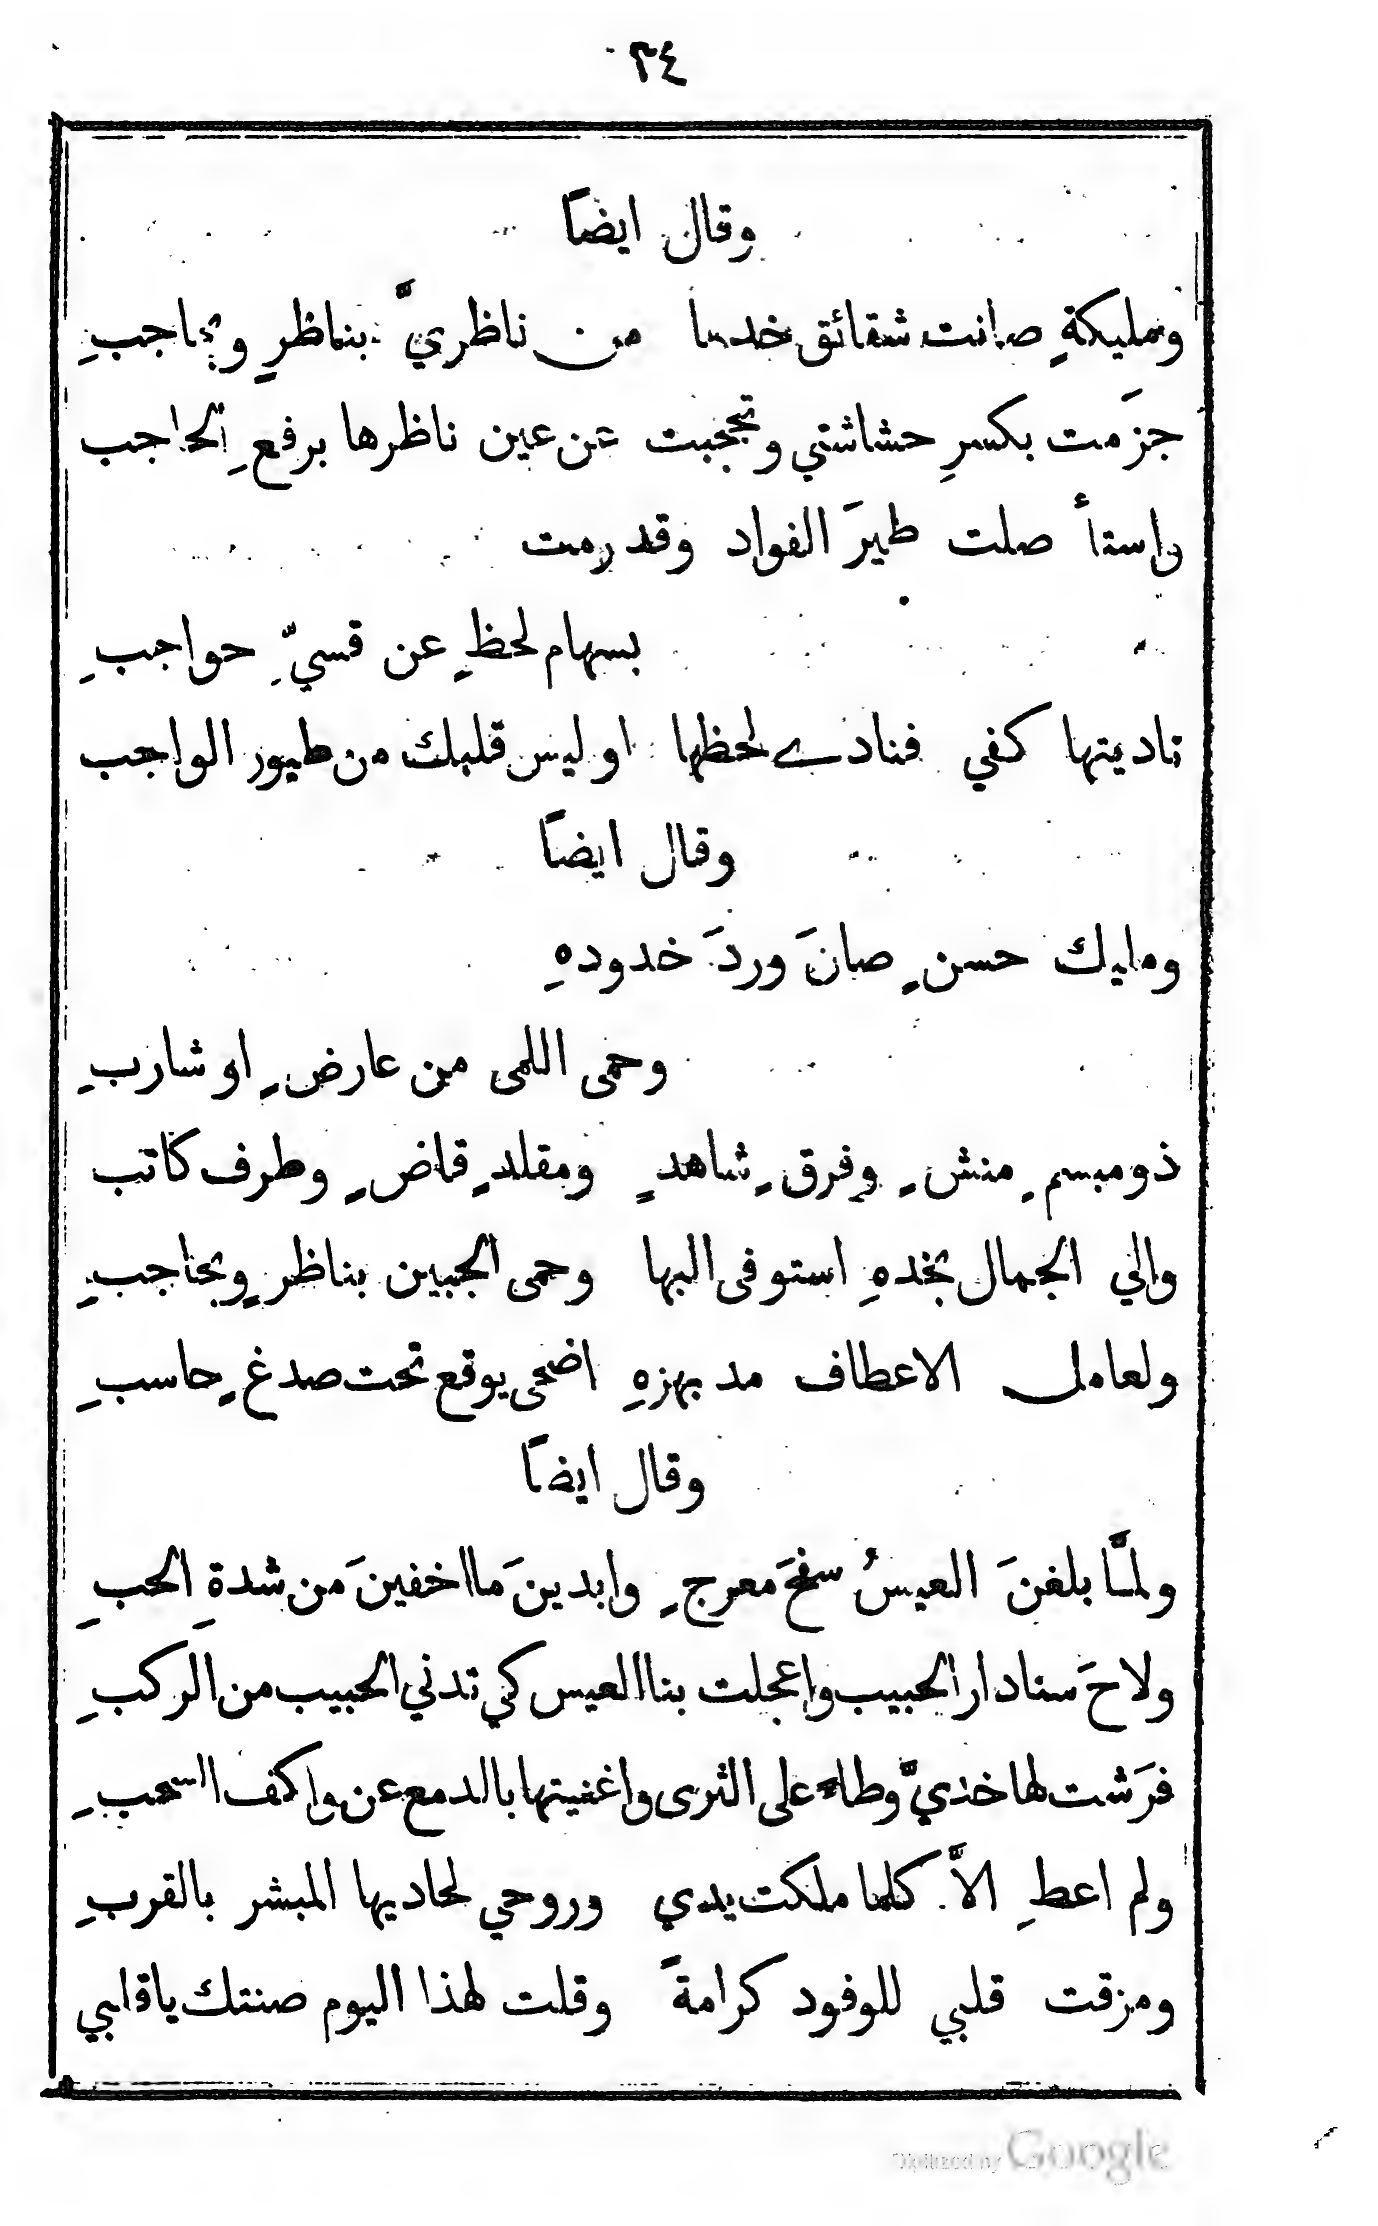 ٣٤
وقال ايضاً
ومليكةٍ صانت شقائق خدها من ناظريَّ بناظرٍ وبحاجبِ
جزَمت بكسرِ حشاشتي وتحجبت عن عين ناظرها برفعِ الحاجب
واستأصلت طيرَ الفواد وقد رمت
بسهام لحظٍ عن قسيِّ حواجبِ
ناديتها كفي فنادے لحظها او ليس قلبك من طيور الواجب
وقال ايضاً
ومليك حسنٍ صانَ وردَ خدودهِ
وحمى اللمى من عارضٍ او شاربِ
ذو مبسمٍ منشٍ وفرقٍ شاهدٍ ومقلدٍ قاضٍ وطرف كاتب
والي الجمال بخدهِ استوفى البها وحمى الجبين بناظرٍ وبحاجبِ
ولعامل الاعطاف مد بهزهِ اضحى يوقع تحت صدغٍ حاسبِ
وقال ايضاً
ولمَّا بلغنَ العيسُ سفحَ معرجٍ وابدينَ ما اخفينَ من شدةِ الحبِ
ولاحَ سنا دار الحبيب واعجلت بنا العيس كي تدني الحبيب من الركبِ
فرَشت لها خديَّ وطاءً على الثرى واغنيتها بالدمع عن واكف السحبِ
ولم اعطِ الاَّ كلما ملكت يدي وروحي لحاديها المبشر بالقربِ
ومزقت قلبي للوفود كرامةً وقلت لهذا اليوم صنتك يا قلبي
Digitized by Google